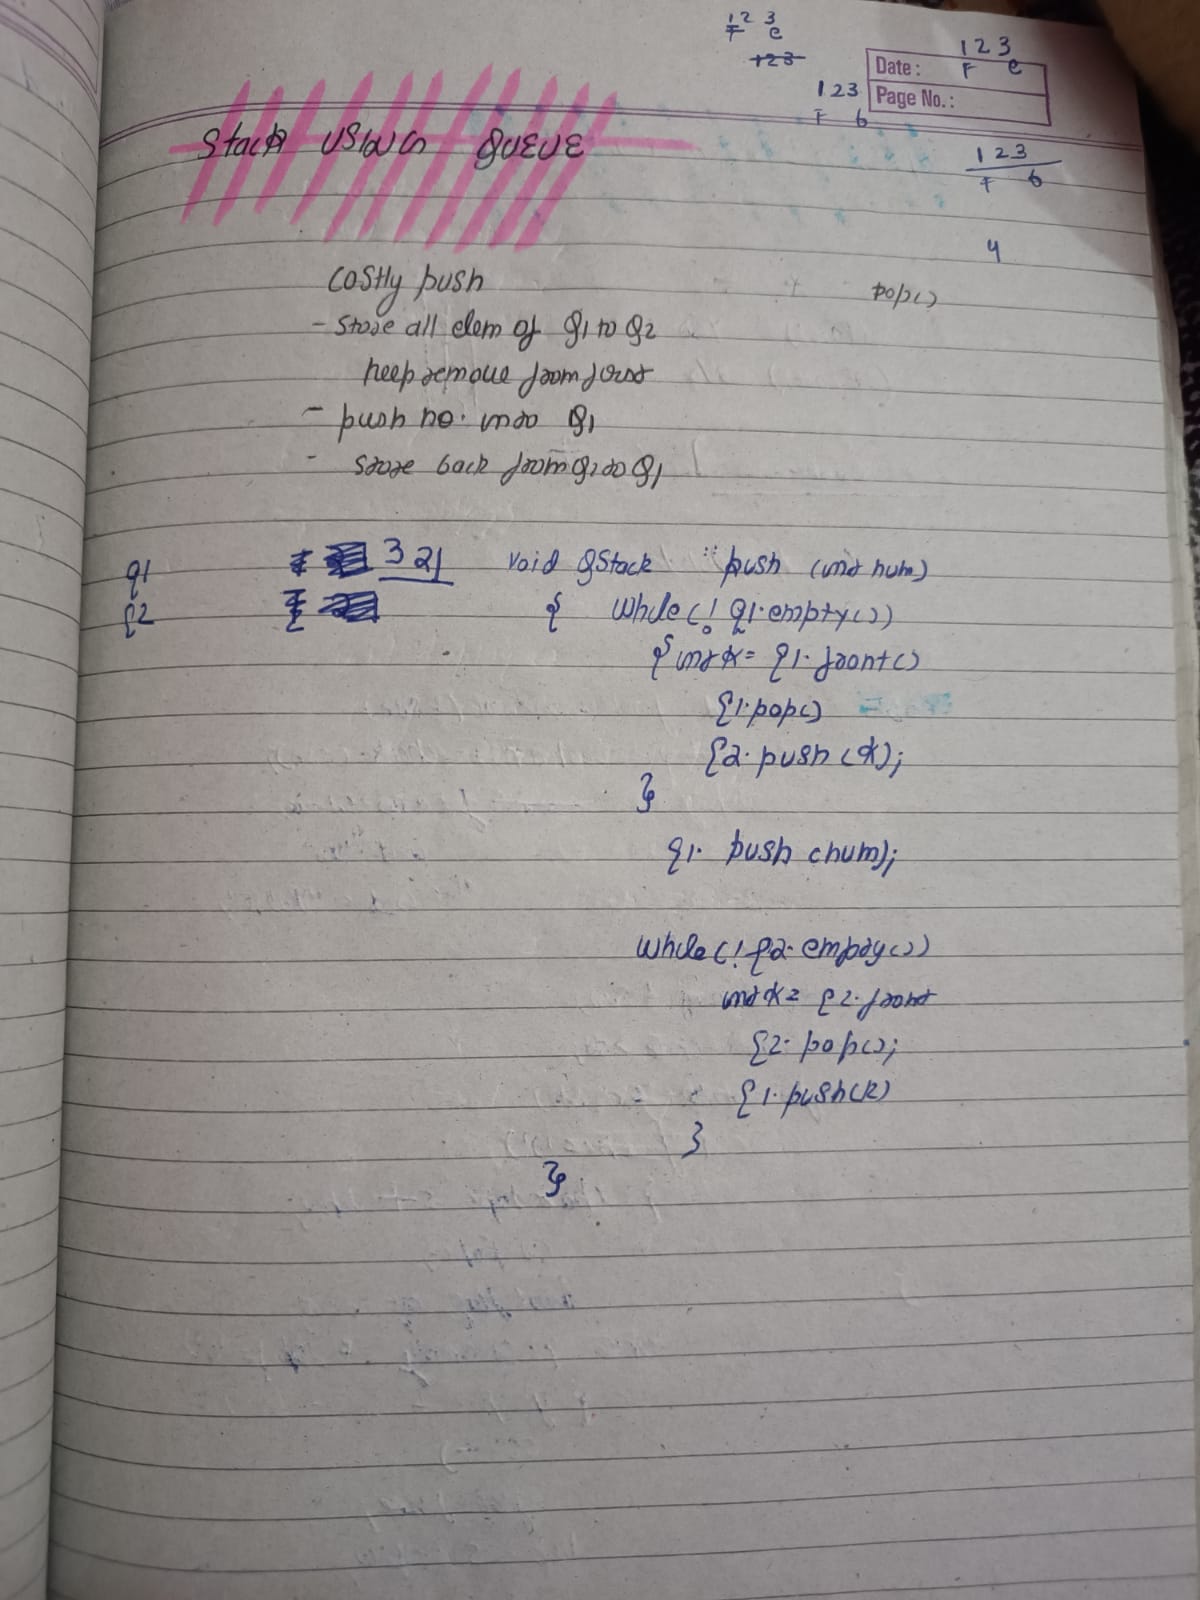 1 2 3
F e
123
1 2 3
F e
Date :
Page No. :
1 2 3
F 6
1 2 3
F 6
Stack USING QUEUE
4
costly push
pop()
- store all elem of Q1 to Q2
keep remove from first
- push no. into Q1
- store back from Q2 to Q1
q1 3 21 void QStack :: push (int num)
q2 { while(! q1.empty())
{ int x = q1.front()
q1.pop()
q2.push(x);
}
q1. push (num);
while(! q2.empty())
int x = q2.front
q2.pop();
q1.push(x)
}
}